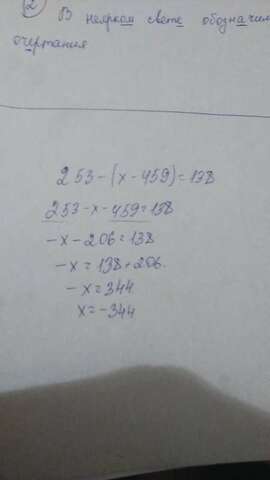 2
В неярком свете обозначим
очертания
253-(x-459)=138
253-x-459=138
-x-206=138
-x=138+206.
-x=344
x=-344